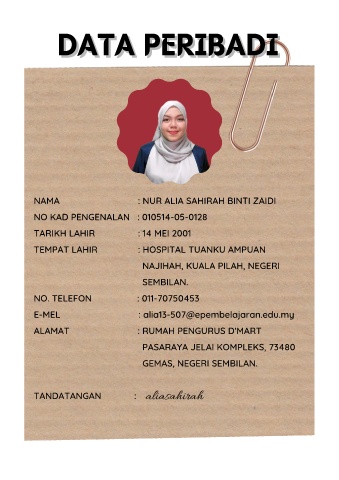 DATA PERIBADI
NAMA : NUR ALIA SAHIRAH BINTI ZAIDI
NO KAD PENGENALAN : 010514-05-0128
TARIKH LAHIR : 14 MEI 2001
TEMPAT LAHIR : HOSPITAL TUANKU AMPUAN
NAJIHAH, KUALA PILAH, NEGERI
SEMBILAN.
NO. TELEFON : 011-70750453
E-MEL : alia13-507@epembelajaran.edu.my
ALAMAT : RUMAH PENGURUS D'MART
PASARAYA JELAI KOMPLEKS, 73480
GEMAS, NEGERI SEMBILAN.
TANDATANGAN : aliasahirah